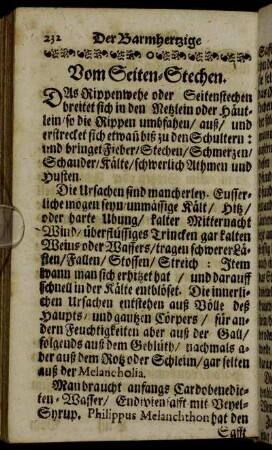 232 Der Barmhertzige
Vom Seiten-Stechen.
DAs Rippenwehe oder Seitenstechen
breitet sich in den Netzlein oder Häut-
lein/ so die Rippen umbfahen/ auß/ und
erstrecket sich etwañ biß zu den Schultern:
und bringet Fieber/ Stechen/ Schmerzen/
Schauder/ Kälte/ schwerlich Athmen und
Husten.
Die Ursachen sind mancherley. Eusser-
liche mögen seyn/ unmässige Kält/ Hitz/
oder harte Ubung/ kalter Mitternacht
Wind/ überflüssiges Trincken gar kalten
Weins oder Wassers/ tragen schwerer Lä-
sten/ Fallen/ Stossen/ Streich: Item
wann man sich erhitzet hat/ und darauff
schnell in der Kälte entblöset. Die innerli-
chen Ursachen entstehen auß Völle deß
Haupts/ und gantzen Cörpers/ für an-
dern Feuchtigkeiten aber auß der Gall/
folgends auß dem Geblüth/ nachmals a-
ber auß dem Rotz oder Schleim/ gar selten
auß der Melancholia.
Man braucht anfangs Cardobenedic-
ten-Wasser/ Endiviensafft mit Veyel-
Syrup. Philippus Melanchthon hat den
Safft